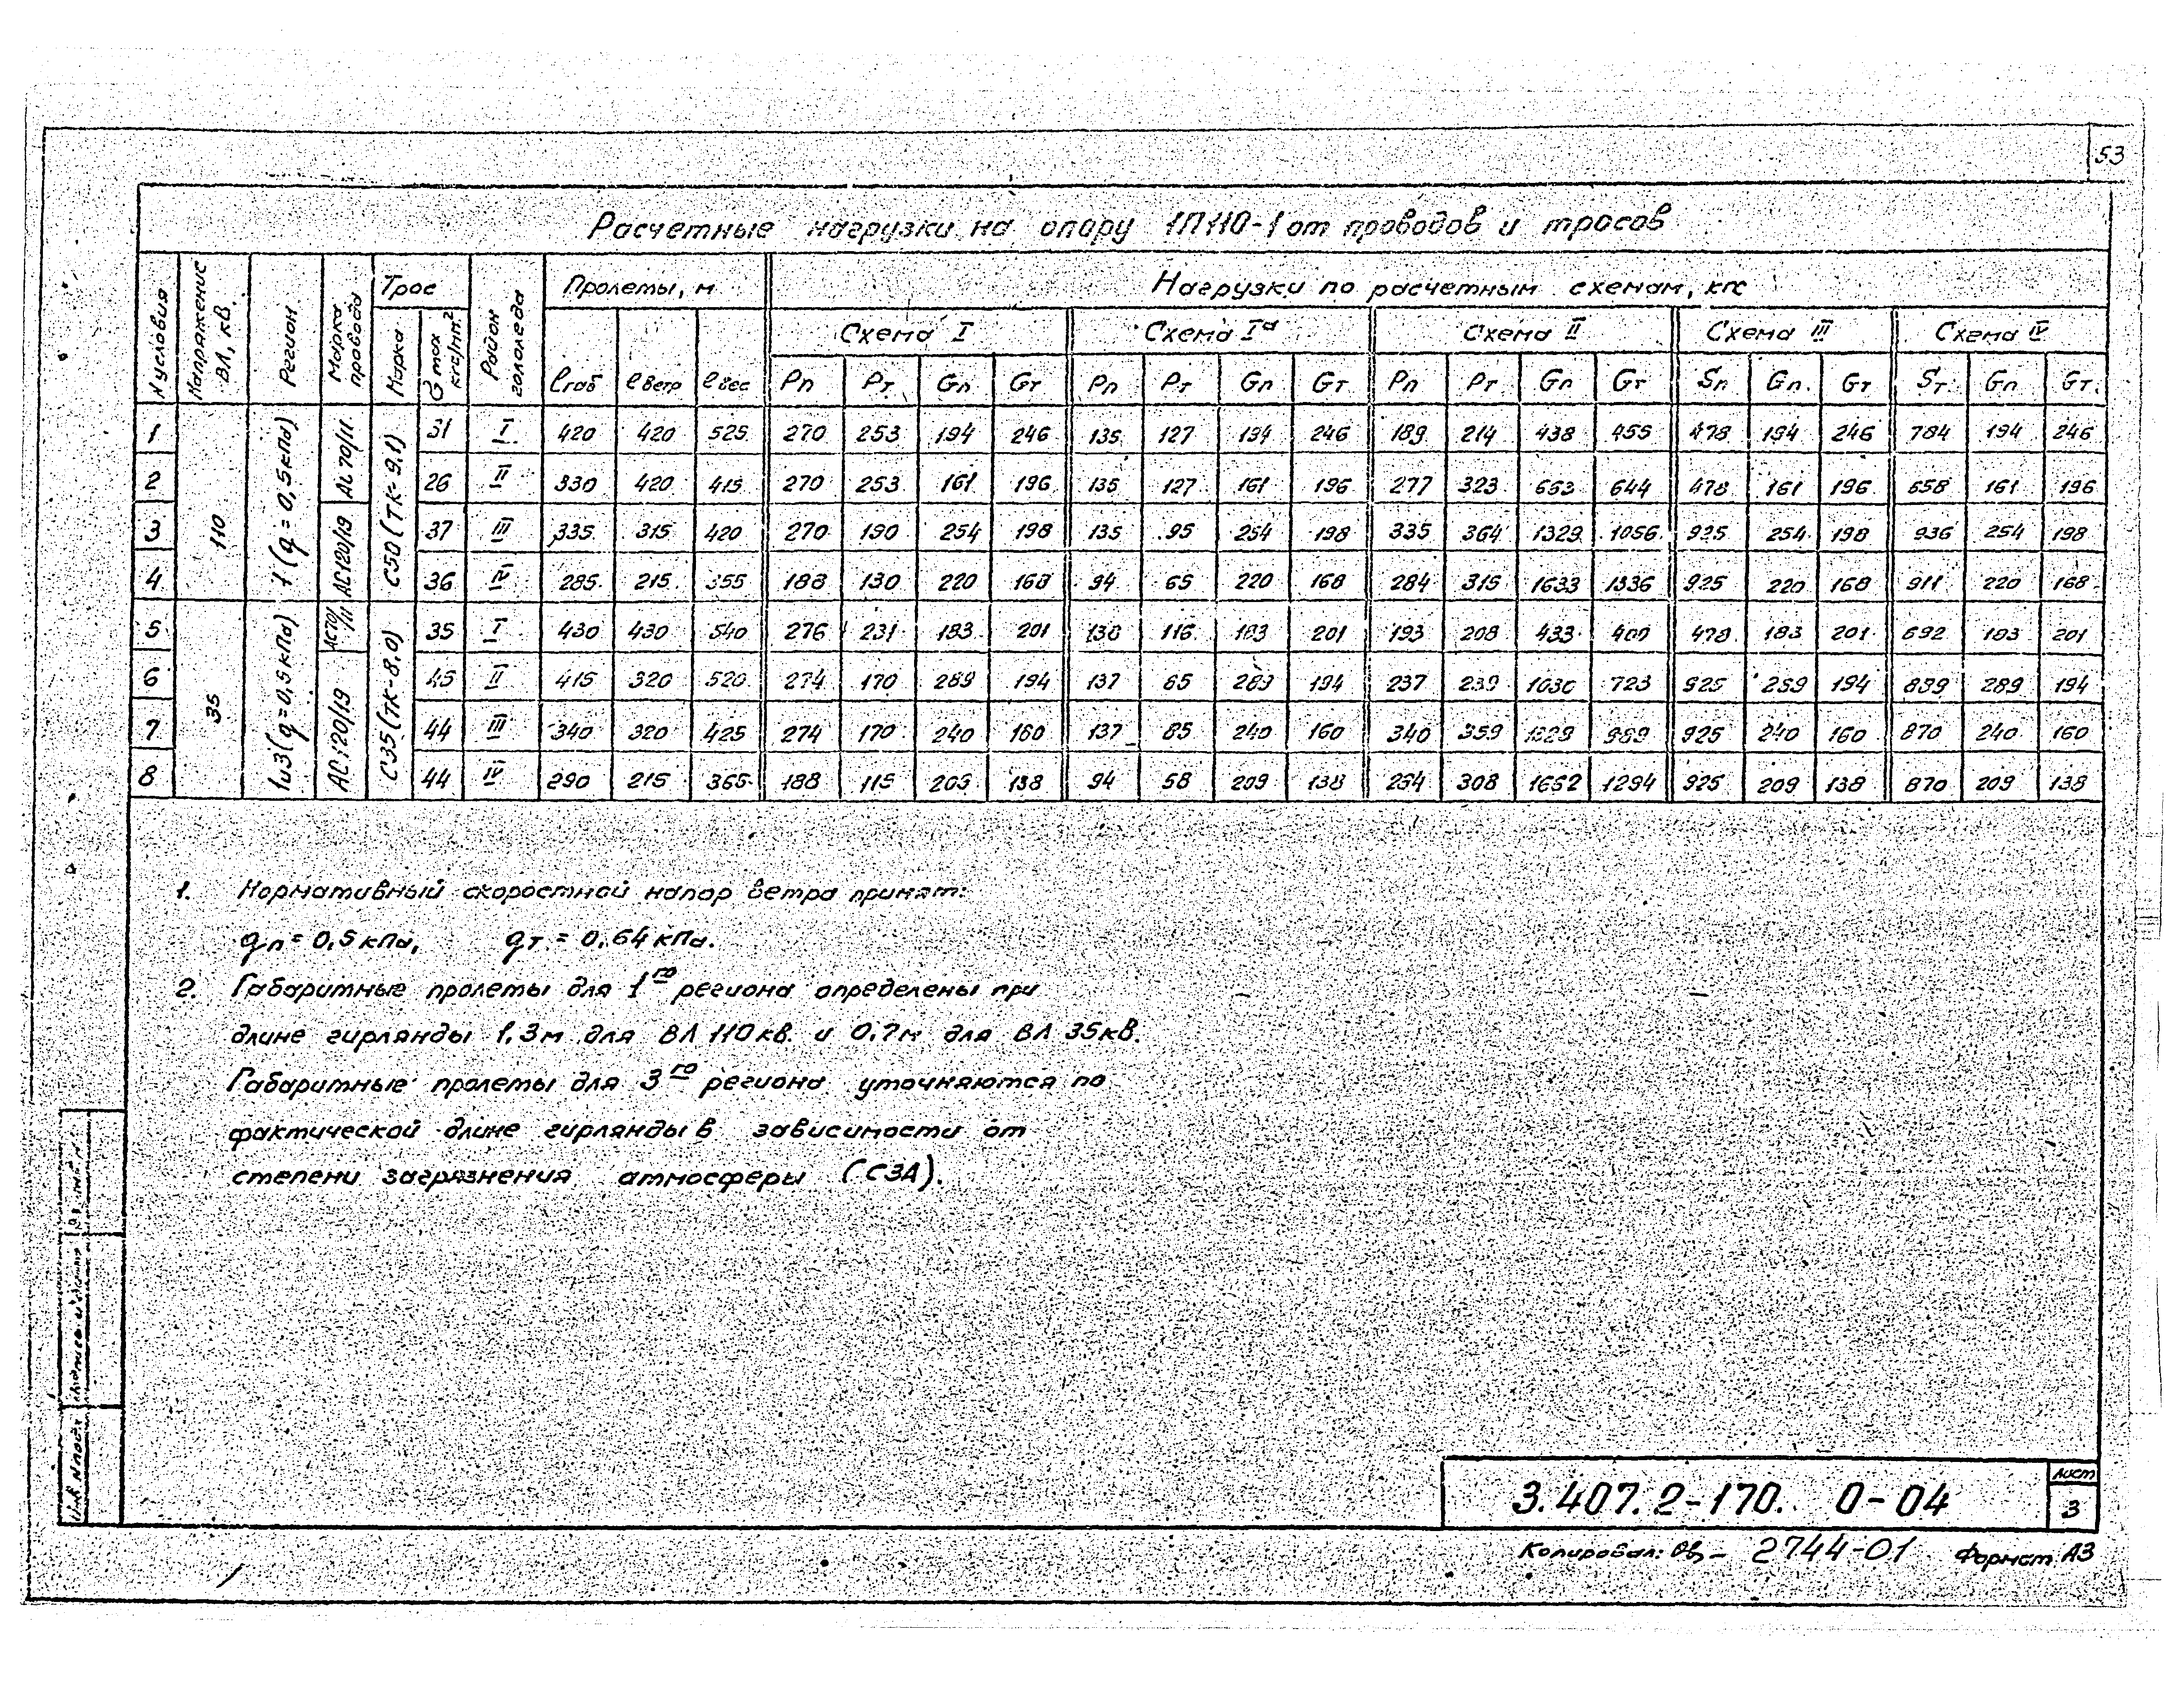 53
Расчетные нагрузки на опору 1П110-1 от проводов и тросов
N условия Напряжение ВЛ, кВ. Регион Марка провода Трос Район гололеда Пролеты, м Нагрузки по расчетным схемам, кгс
Марка σ max кгс/mm² Схема I Схема Iа Схема II Схема III Схема IV
ℓгаб ℓветр ℓвес Рп Рт Gп Gт Рп Рт Gп Gт Рп Рт Gп Gт Sп Gп. Gт Sт. Gп Gт.
110 1 (q = 0,5 кПа) АС 70/11 С50 (ТК-9.1)
1 31 I 420 420 525 270 253 194 246 135 127 194 246 189 214 438 455 478 194 246 784 194 246
2 26 II 330 420 415 270 253 161 196 135 127 161 196 277 323 653 644 478 161 196 658 161 196
АС120/19
3 37 III 335 315 420 270 190 254 198 135 95 254 198 335 364 1329 1056 925 254 198 936 254 198
4 36 IV 285 215 355 188 130 220 168 94 65 220 168 284 315 1633 1336 925 220 168 911 220 168
35 1и3 (q = 0,5 кПа) АС70/11 С35 (ТК-8.0)
5 35 I 430 430 540 276 231 183 201 138 116 183 201 193 208 433 400 478 183 201 692 183 201
АС120/19
6 45 II 415 320 520 274 170 289 194 137 85 289 194 237 239 1030 723 925 289 194 889 289 194
7 44 III 340 320 425 274 170 240 160 137 85 240 160 340 359 1329 989 925 240 160 870 240 160
8 44 IV 290 215 365 188 115 209 138 94 58 209 138 284 308 1652 1294 925 209 138 870 209 138
1. Нормативный скоростной напор ветра принят:
qп = 0,5 кПа, qт = 0,64 кПа.
2. Габаритные пролеты для 1го региона определены при
длине гирлянды 1,3м для ВЛ 110кВ. и 0,7м для ВЛ 35кВ.
Габаритные пролеты для 3го региона уточняются по
фактической длине гирлянды в зависимости от
степени загрязнения атмосферы (СЗА).
Инв. N подл.
3.407.2-170. 0-04
Лист
3
Копировал: 2744-01 Формат А3